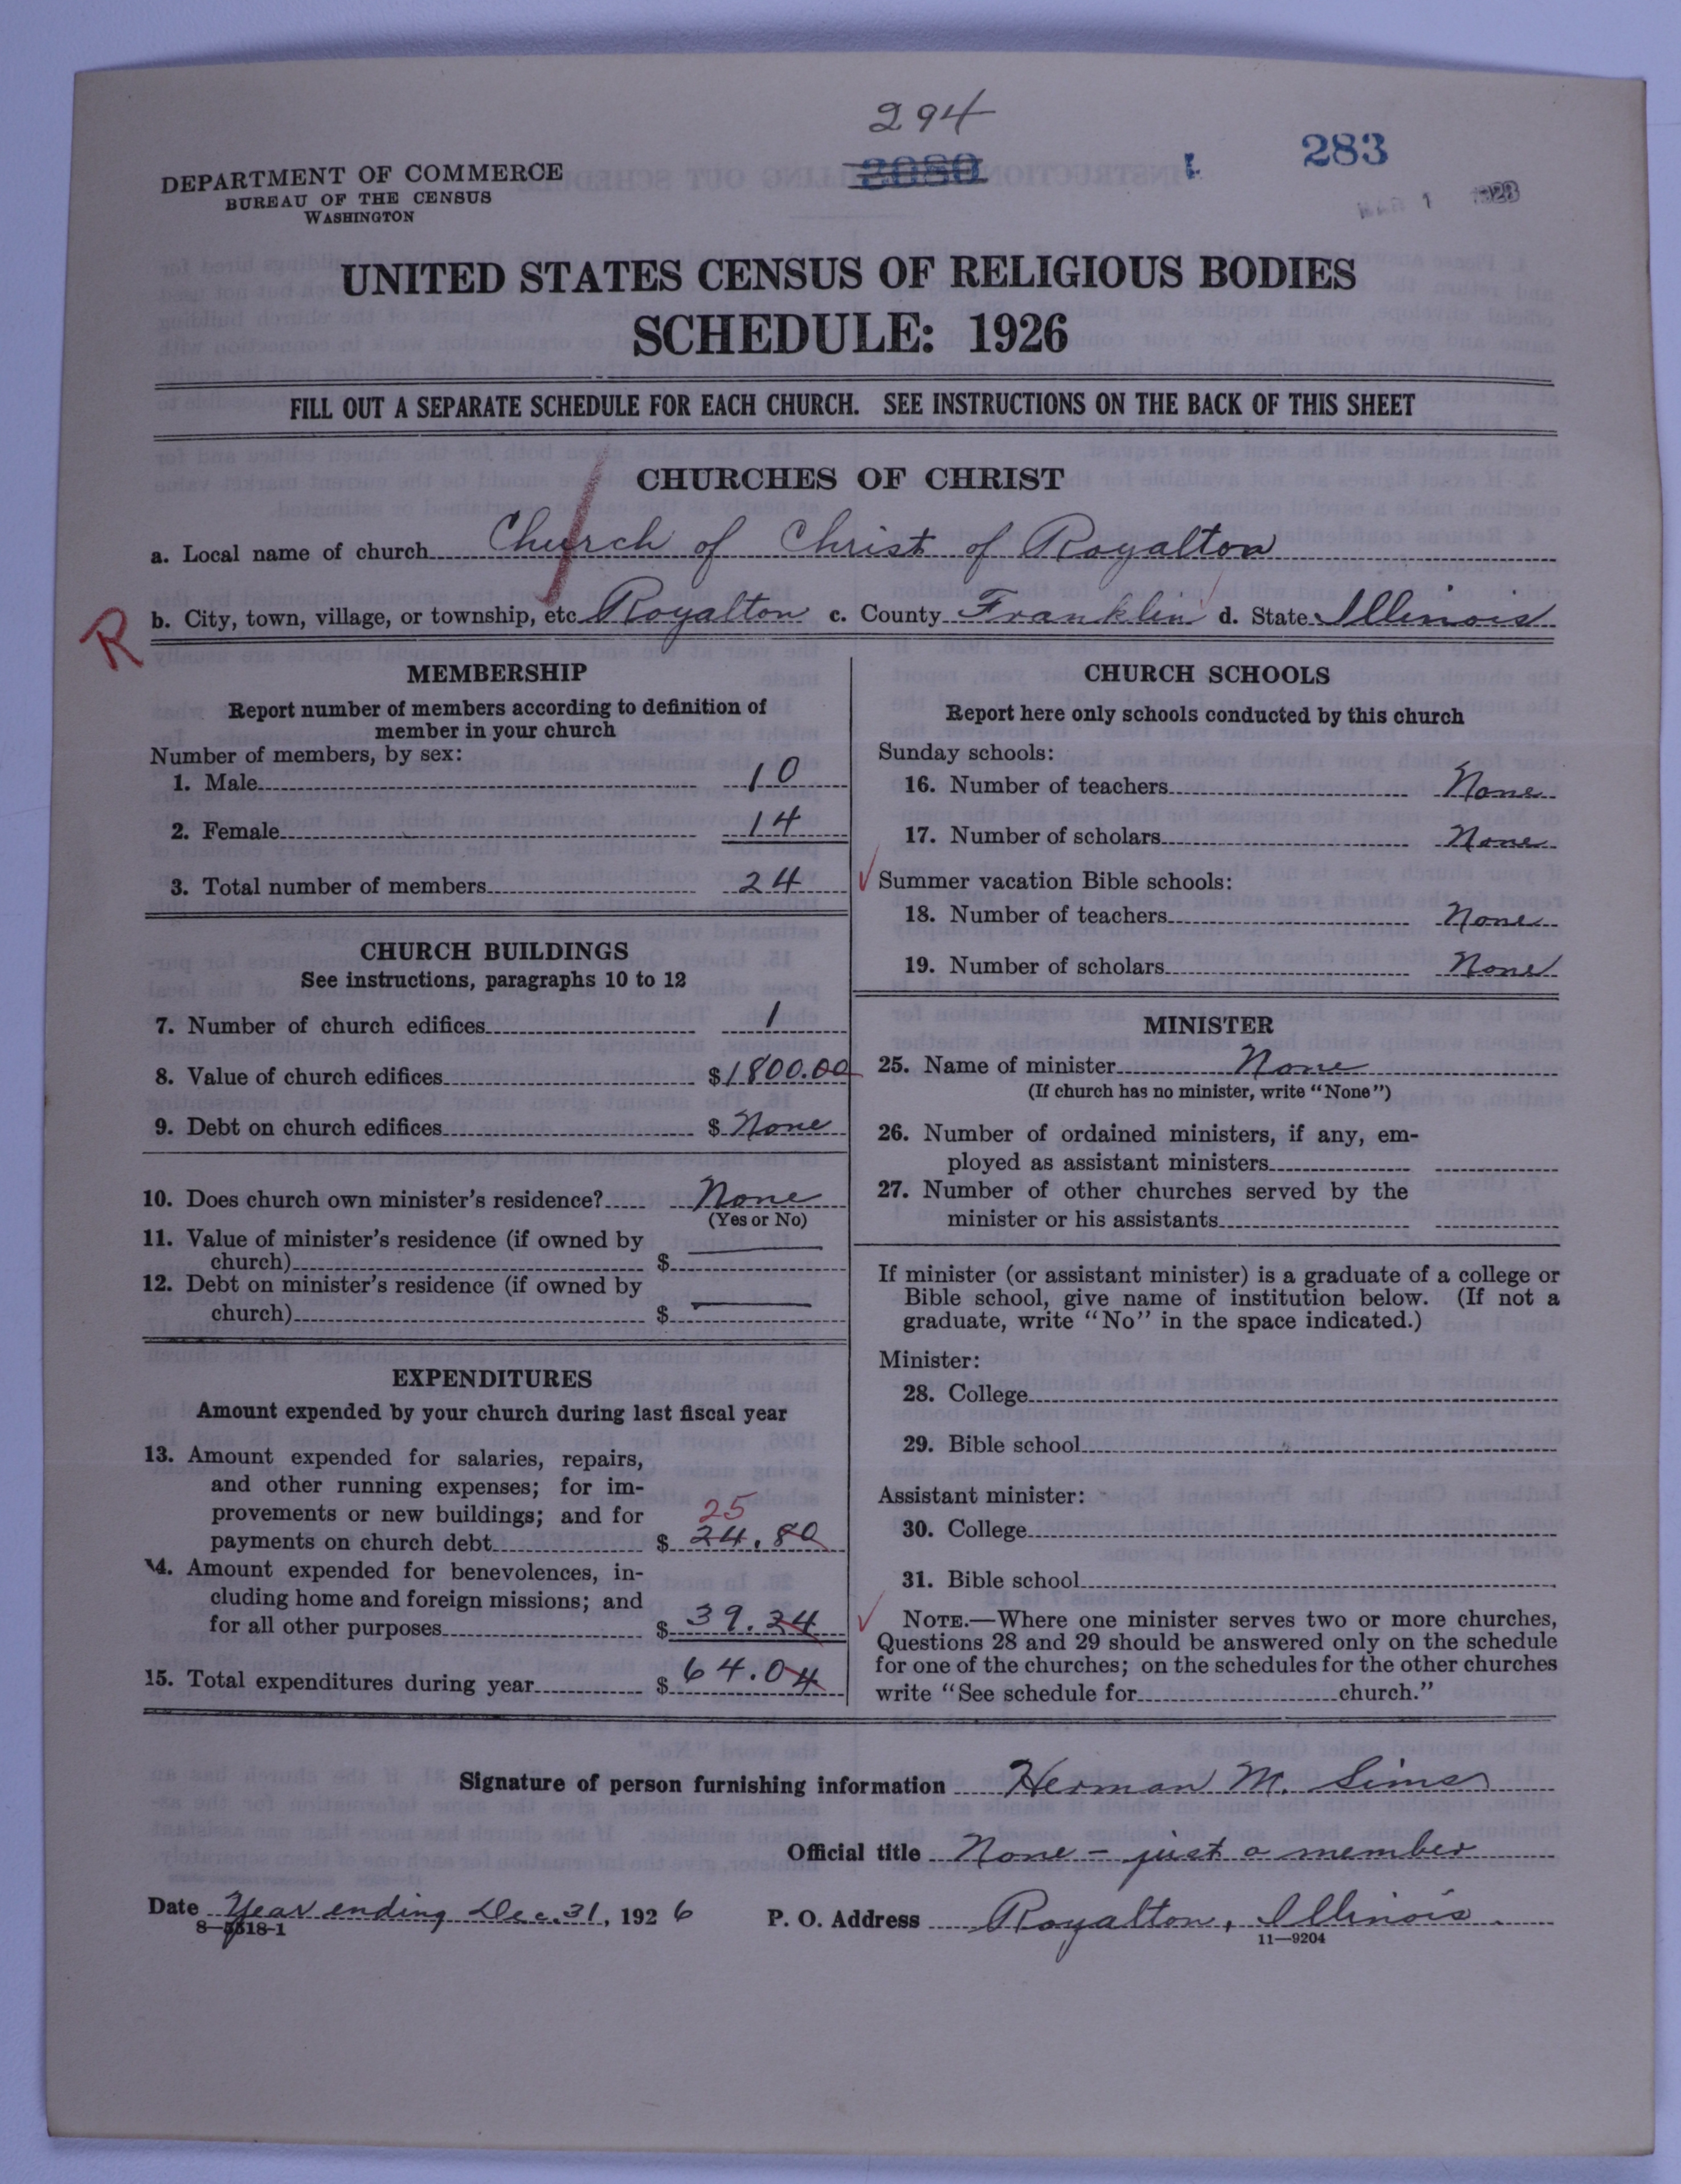 294
2080
283
1928
DEPARTMENT OF COMMERCE
BUREAU OF THE CENSUS
WASHINGTON
UNITED STATES CENSUS OF RELIGIOUS BODIES
SCHEDULE: 1926
FILL OUT A SEPARATE SCHEDULE FOR EACH CHURCH. SEE INSTRUCTIONS ON THE BACK OF THIS SHEET
CHURCHES OF CHRIST
a. Local name of church Church of Christ of Royalton
R
b. City, town, village, or township, etc Royalton c. County Franklin d. State Illinois
MEMBERSHIP
Report number of members according to definition of
member in your church
Number of members, by sex:
1. Male 10
2. Female 14
3. Total number of members 24
CHURCH BUILDINGS
See instructions, paragraphs 10 to 12
7. Number of church edifices 1
8. Value of church edifices $1800.00
9. Debt on church edifices $ None
10. Does church own minister's residence? None
(Yes or No)
11. Value of minister's residence (if owned by
church) $
12. Debt on minister's residence (if owned by
church) $
EXPENDITURES
Amount expended by your church during last fiscal year
13. Amount expended for salaries, repairs,
and other running expenses; for im-
provements or new buildings; and for 25
payments on church debt $ 24.80
14. Amount expended for benevolences, in-
cluding home and foreign missions; and
for all other purposes $ 39.24
15. Total expenditures during year $ 64.04
CHURCH SCHOOLS
Report here only schools conducted by this church
Sunday schools:
16. Number of teachers None
17. Number of scholars None
Summer vacation Bible schools:
18. Number of teachers None
19. Number of scholars None
MINISTER
25. Name of minister None
(If church has no minister, write "None")
26. Number of ordained ministers, if any, em-
ployed as assistant ministers
27. Number of other churches served by the
minister or his assistants
If minister (or assistant minister) is a graduate of a college or
Bible school, give name of institution below. (If not a
graduate, write "No" in the space indicated.)
Minister:
28. College
29. Bible school
Assistant minister:
30. College
31. Bible school
NOTE.—Where one minister serves two or more churches,
Questions 28 and 29 should be answered only on the schedule
for one of the churches; on the schedules for the other churches
write "See schedule for church."
Signature of person furnishing information Herman M. Sims
Official title None - just a member
Date Year ending Dec. 31, 1926 P. O. Address Royalton, Illinois.
8—5518-1
11—9204